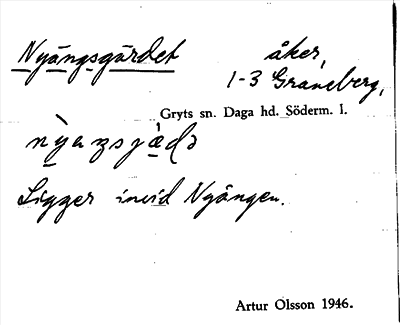 Nyängsgärdet åker,
1-3 Graneberg,
Gryts sn. Daga hd. Söderm. l.
Ligger invid Nyängen.
Artur Olsson 1946.